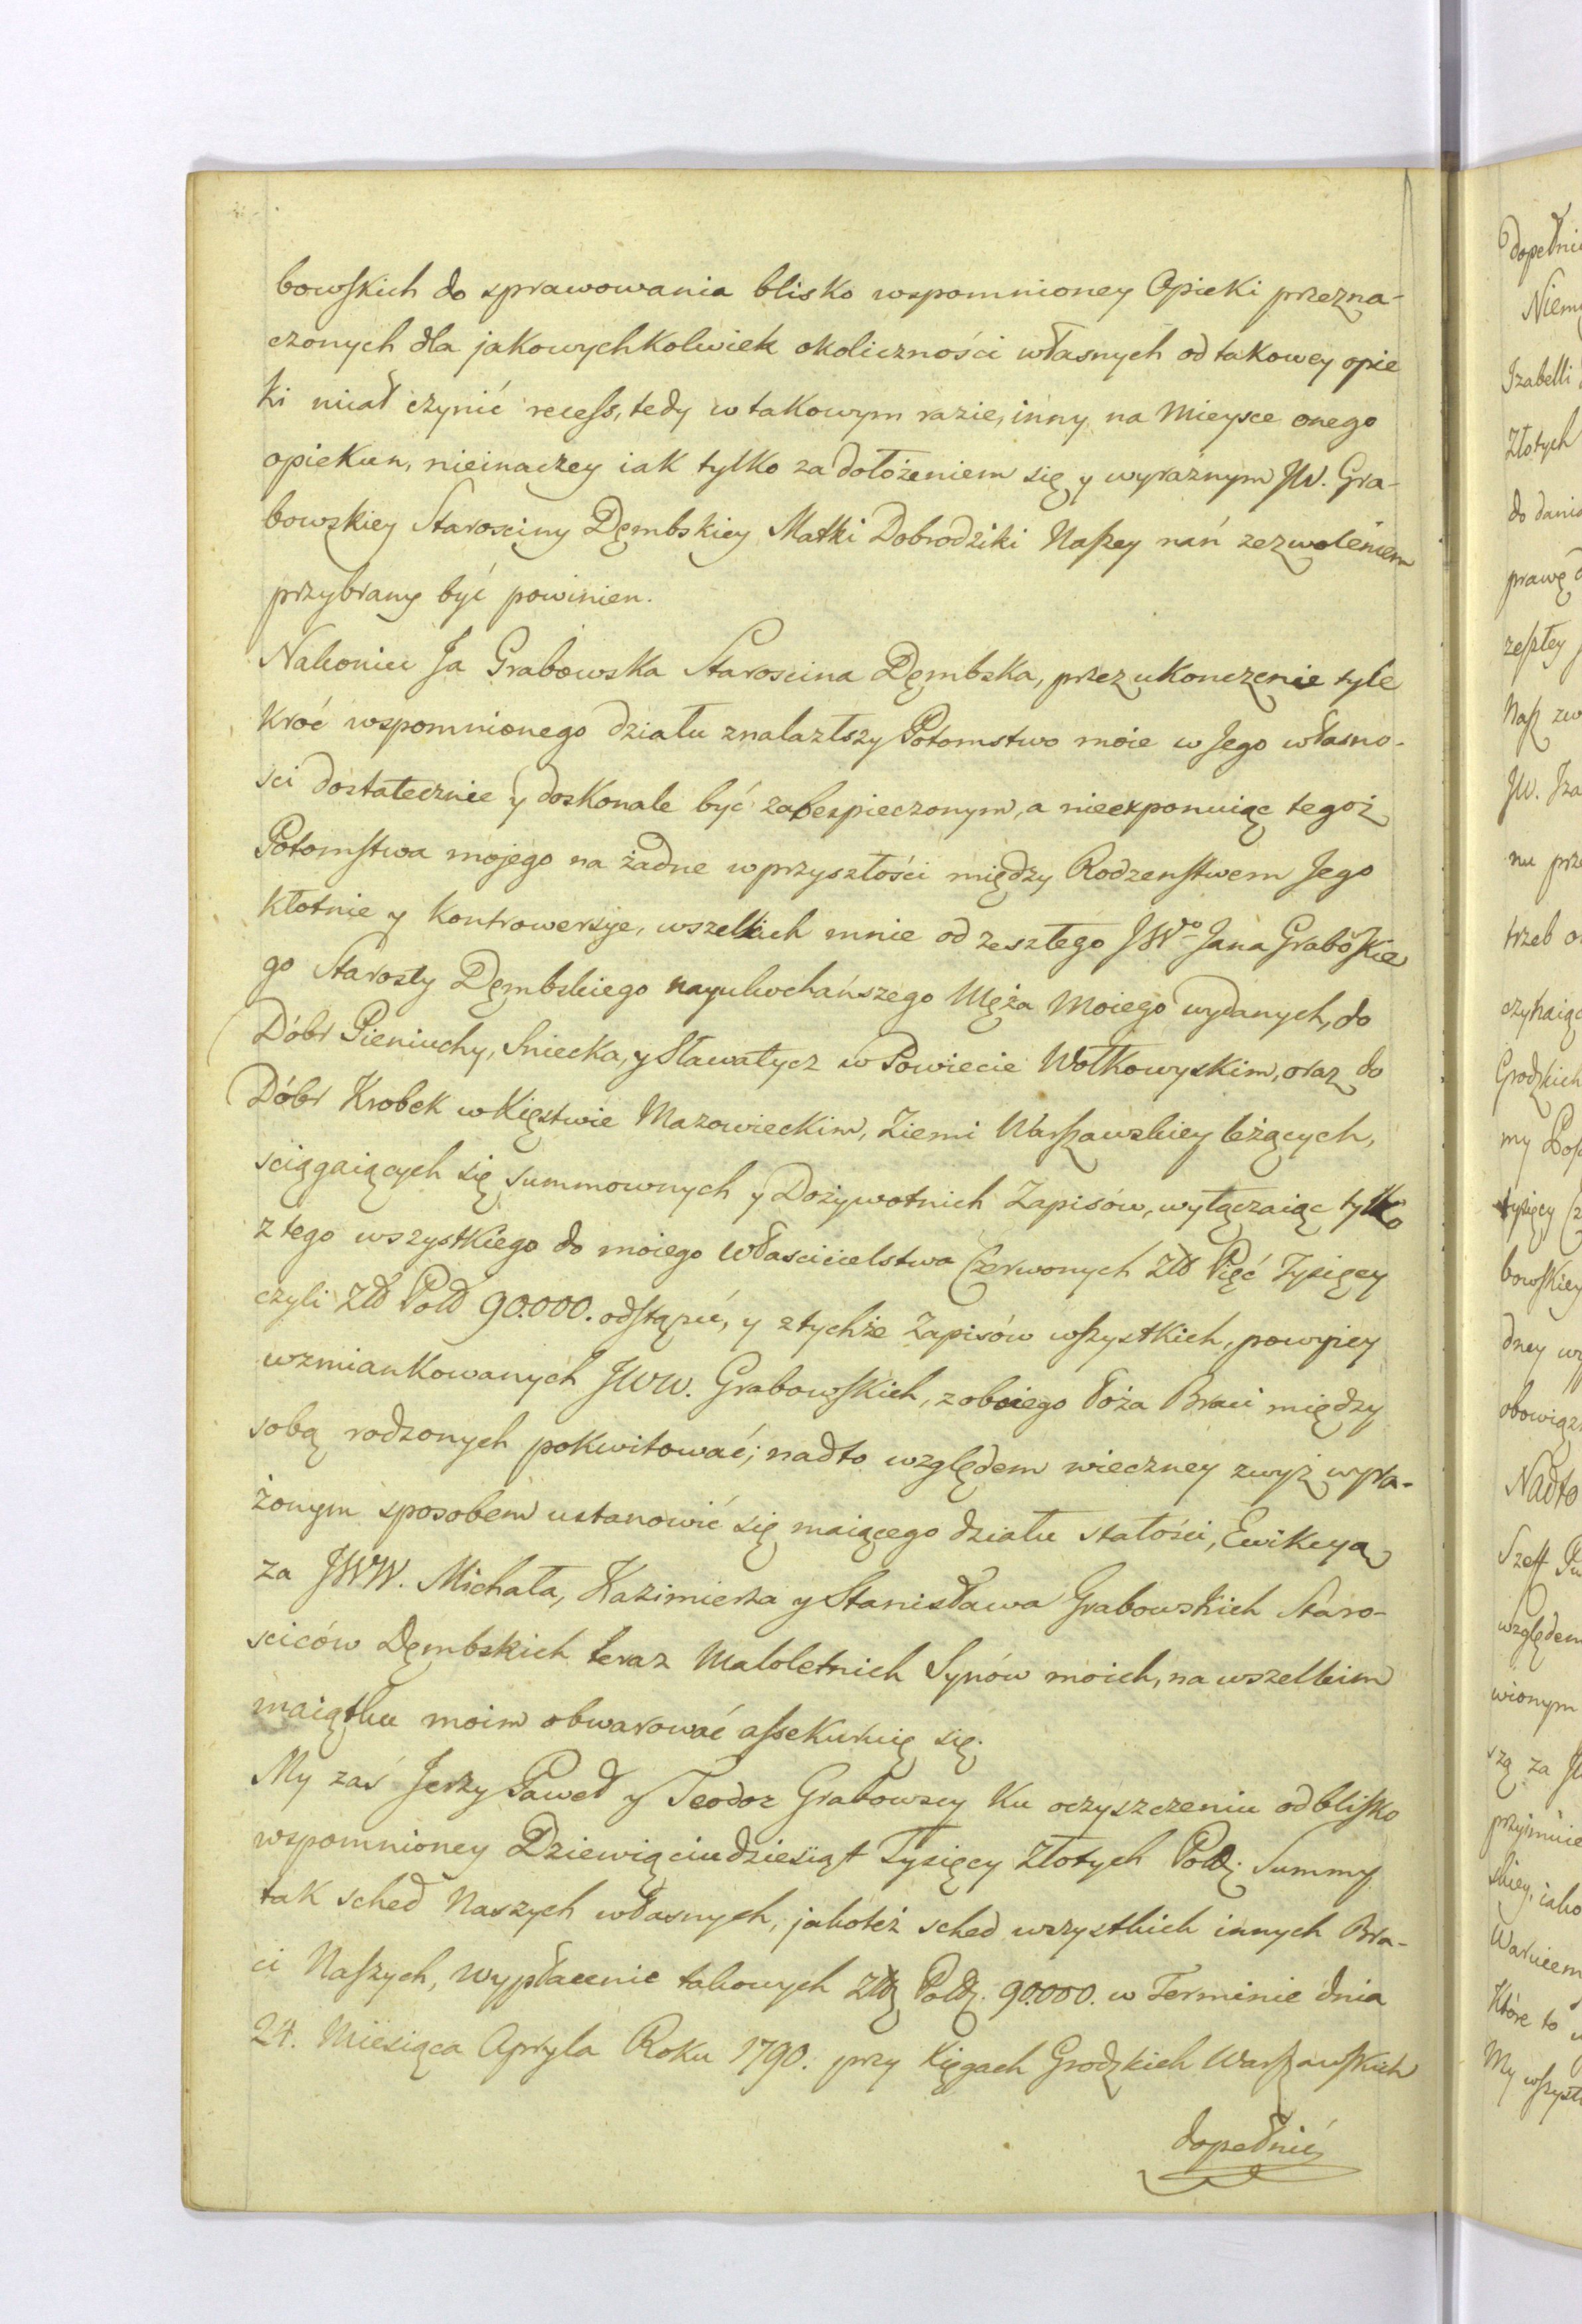 bowskich do sprawowania blisko wspomnioney Opieki przezna-
czonych dla jakowychkolwiek okoliczności własnych od takowey opie
ki miał czynić recess, tedy w takowym razie, inny na Mieysce onego
opiekun, nieinaczey iak tylko za dołożeniem się y wyraznym JW. Gra-
bowskiey Starosciny Dęmbskiey Matki Dobrodziki Naszey nań zezwoleniem
przybrany być powinien.
Nakoniec Ja Grabowska Staroscina Dęmbska, przez ukonczenie tyle
kroć wspomnionego działu znalazłszy Potomstwo moie w Jego własno-
sci dostatecznie y doskonale być zabespieczonym, a nieexponuiąc tegoż
Potomstwa mojego na żadne w przyszłości między Rodzenstwem Jego
kłotnie y Kontrowersye, wszelkich mnie od zeszłego JWo Jana Grabőskie
go Starosty Dęmbskiego nayukochańszego Męża Moiego wydanych, do
Dóbr Pieniuchy, Sniecka, y Sławatycz w Powiecie Wołkowyskim, oraz do
Dóbr Krobek w Xięstwie Mazowieckim, Ziemi Warszawskiey leżących,
sciągaiących się summownych y Dożywotnich Zapisów, wyłączaiąc tylko
z tego wszystkiego do moiego Włascicielstwa Czerwonych Złł Pięć Tysięcy
czyli Złł Poll 90.000. odstąpić, y z tychże Zapisów wszystkich, powyiey
wzmiankowanych JWW. Grabowskich, z oboiego łoża Braci między
sobą rodzonych pokwitować; nadto względem wieczney zwyż wyra-
żonym sposobem ustanowić się maiącego działu stałości, Ewikcyą
za JWW. Michała, Kazimierza y Stanisława Grabowskich Staro-
sciców Dęmbskich teraz Małoletnich Synów moich, na wszelkim
maiątku moim obwarować assekuruię się.
My zaś Jerzy Paweł y Teodor Grabowscy Ku oczyszczeniu od blisko
wspomnioney Dziewięciudziesiąt Tysięcy Złotych Poll. Summy
tak sched Naszych własnych, jakoteż sched wszystkich innych Bra-
ci Naszych, wypłacenie takowych Złł Poll. 90.000. w Terminie dnia
24. Miesiąca Apryla Roku 1790. przy Xięgach Grodzkich Warszawskich
dopełnić